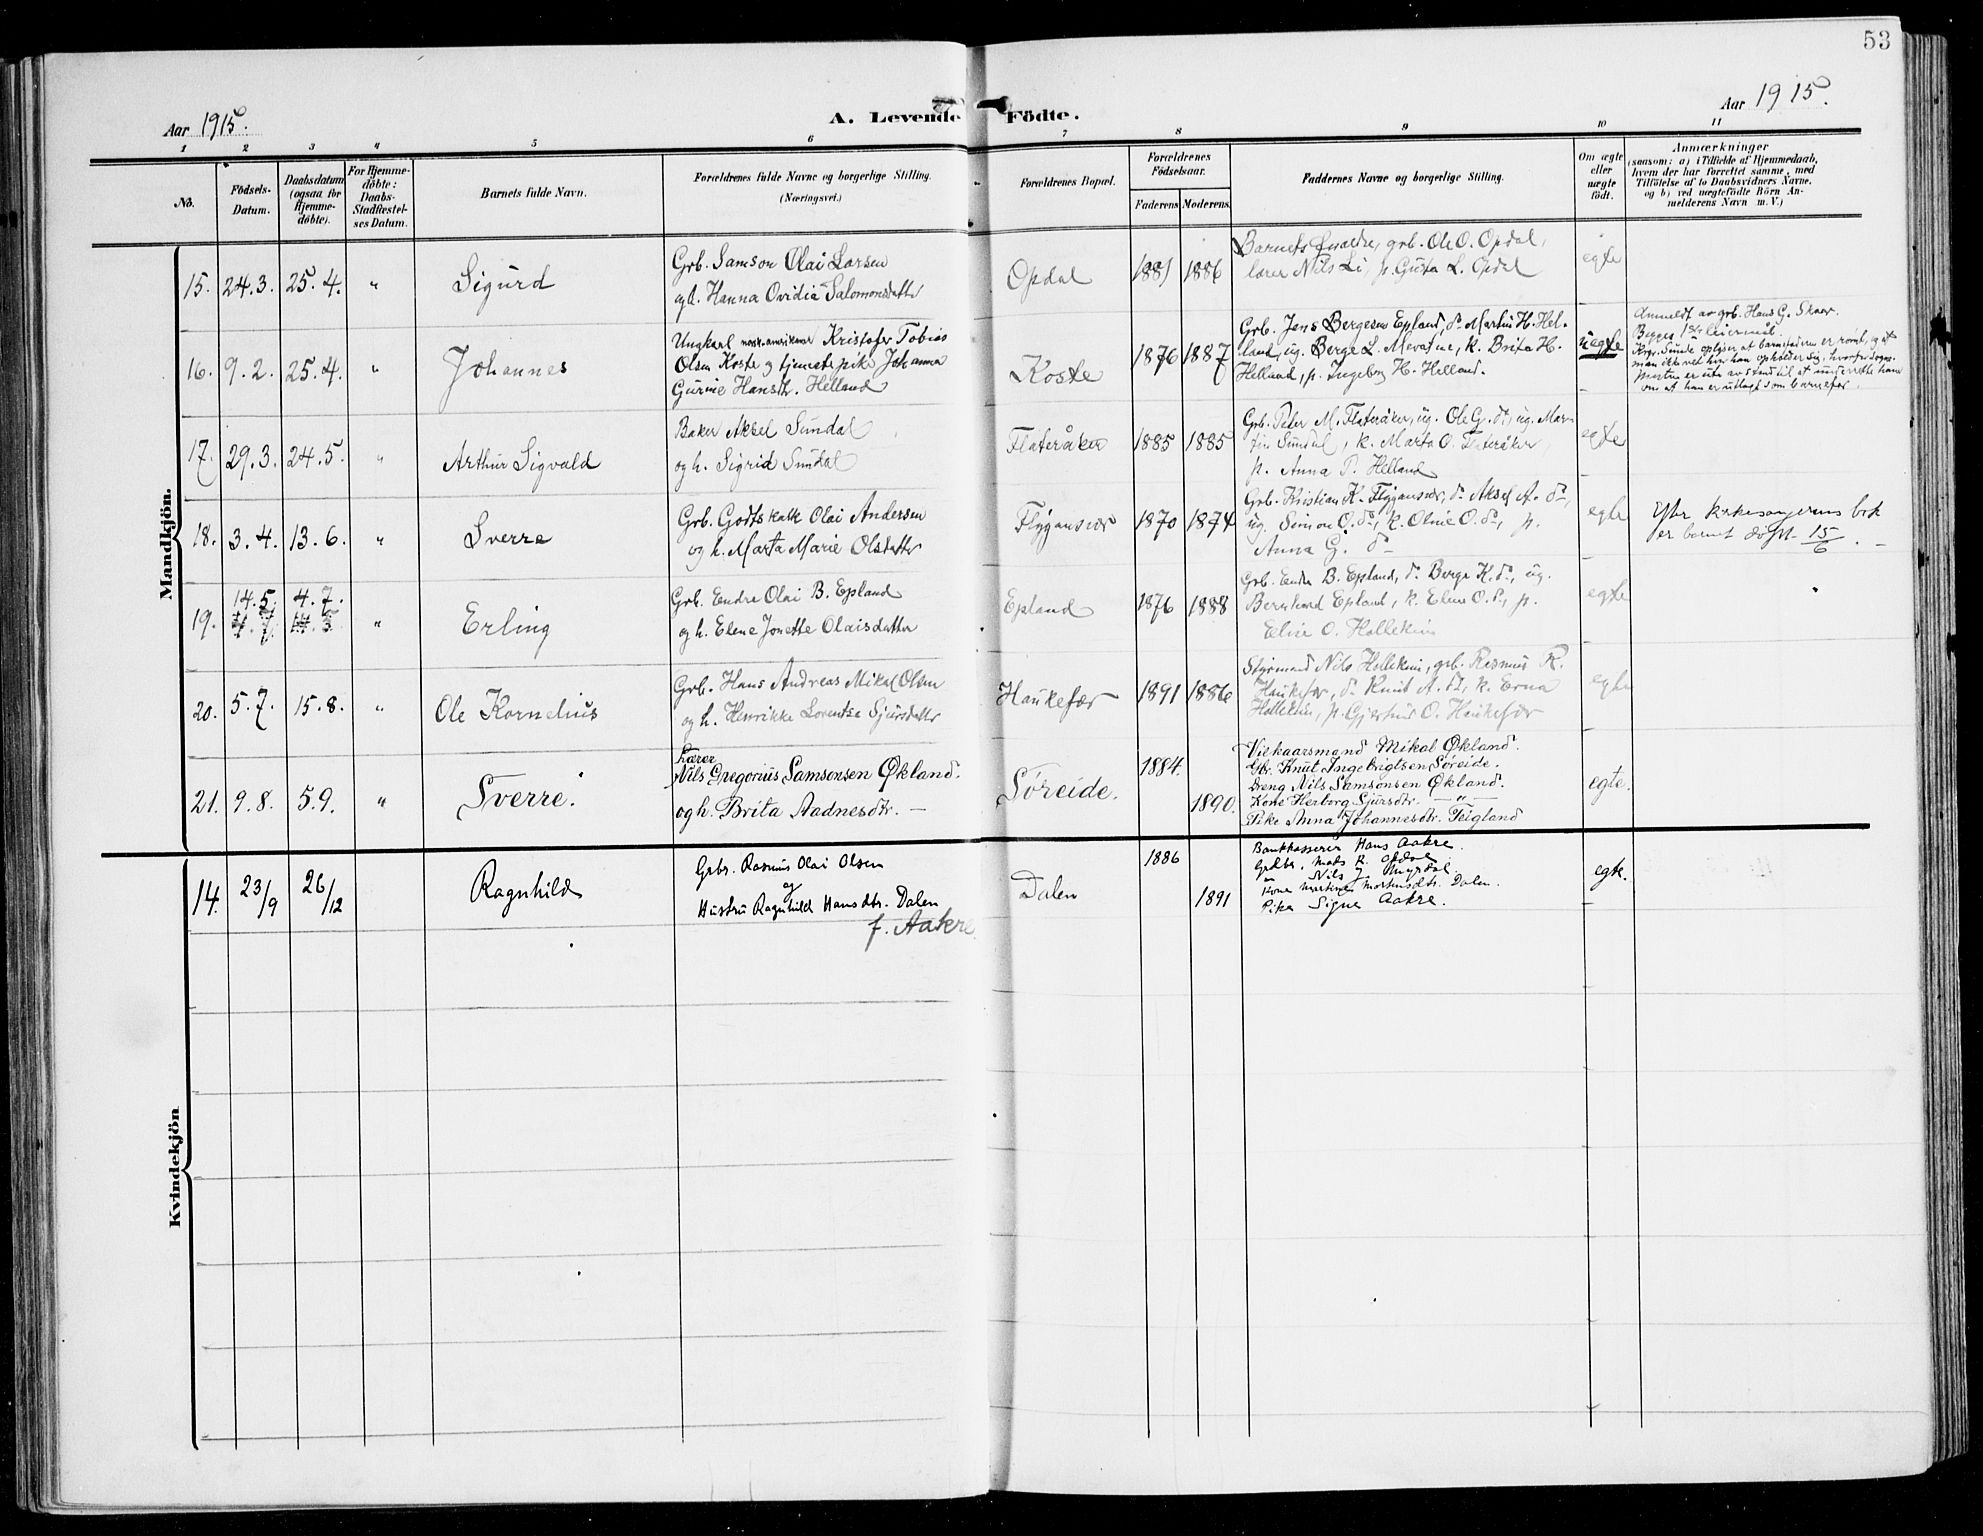 53
Aar 1915.
A. Levende Födte.
Aar 1915.
1 2 3 4 5 6 7 8 9 10 11
No.
Födsels-
Datum.
Daabsdatum
(ogsaa for
Hjemme-
døbte).
For Hjemme-
døbte:
Daabs-
Stadfestel-
ses Datum.
Barnets fulde Navn.
Forældrenes fulde Navne og borgerlige Stilling.
(Næringsvei.)
Forældrenes Bopæl.
Forældrenes
Födselsaar.
Faderens Moderens
Faddernes Navne og borgerlige Stilling.
Om ægte
eller
uægte
født.
Anmærkninger
(saasom: a) i Tilfælde af Hjemmedaab,
hvem der har forrettet samme, med
Tilføielse af to Daabsvidners Navne,
og b) ved uægtefødte Börn An-
melderens Navn m. V.)
Mandkjön.
15. 24.3. 25.4. " Sigurd
Grb. Samson Olai Larsen
og h. Hanna Ovidia Salomonsdatter
Opdal 1881 1886
Barnets foreldre, grb. Ole O. Opdal,
lærer Nils Li, p. Gurta L. Opdal
egte
16. 9.2. 25.4. " Johannes
Ungkarl norsk-amerikaner Kristofer Tobias
Olsen Koste og tjenestepike Johanna
Gurine Hansdtr. Helland
Koste 1876 1887
Grb. Jens Bergesen Epland, do Martin H. Hel-
land, ug. Berge L. Mevatne, k. Brita H.
Helland, p. Ingeborg H. Helland.
uegte
Anmeldt av grb. Hans G. Skaar.
Begges 1ste leiermål.
Krgs. Sunde oplyser at barnefaderen er rømt, og at
man ikke vet hvor han opholder sig, hvorfor sogne-
presten er ute av stand til at underrette ham
om at han er utlagt som barnefar.
17. 29.3. 24.5. " Arthur Sigvald
Baker Aksel Sundal
og h. Sigrid Sundal
Flateråker 1885 1885
Grb. Peter M. Flateråker, ug. Ole G. do, ug. Mar-
tin Sundal, k. Marta O. Flateråker,
p. Anna P. Helland
egte
18. 3.4. 13.6. " Sverre
Grb. Godtskalk Olai Andersen
og h. Marta Marie Olsdatter
Flygansvær 1870 1874
Grb. Kristian K. Flygansvær, do Aksel A. do,
ug. Simon O. do, k. Oline O. do, p.
Anna G. do
egte
Efter kirkesangerens bok
er barnet døpt 15/6.
19. 14.5. 4.7. " Erling
4.7. 14.5
Grb. Endre Olai B. Epland
og h. Elene Jonette Olaisdatter
Epland 1876 1888
Grb. Endre B. Epland, do Berge K. do, ug.
Bernhard Epland, k. Eline O. do, p.
Eline O. Hollekim
egte
20. 5.7. 15.8. " Ole Kornelius
Grb. Hans Andreas Mikal Olsen
og h. Henrikke Lorentse Sjursdatter
Haukefær 1891 1886
Styrmand Nils Hollekim, grb. Rasmus R.
Haukefær, do Knut A. do, k. Erna
Hollekim, p. Gjertrud O. Haukefær
egte
21. 9.8. 5.9. " Sverre.
Lærer
Nils Gregorius Samsonsen Økland.
og h. Brita Aadnesdtr. —
Søreide. 1884. 1890.
Vilkaarsmand Mikal Økland.
Gbr. Knut Ingebrigtsen Søreide.
Dreng Nils Samsonsen Økland.
Kone Herborg Sjursdtr. — " —
Pike Anna Johannesdtr. Teigland
egte.
Kvindekjön
14. 23/9 26/12 Ragnhild
Grbr. Rasmus Olai Olsen
og
Hustru Ragnhild Hansdtr. Dalen
f. Aakre.
Dalen 1886 1891
Bankkasserer Hans Aakre.
Grdbr. Mats R. Opdal
" Nils J. Myrdal.
Kone Martine Mortensdtr. Dalen.
Pike Signe Aakre.
egte.